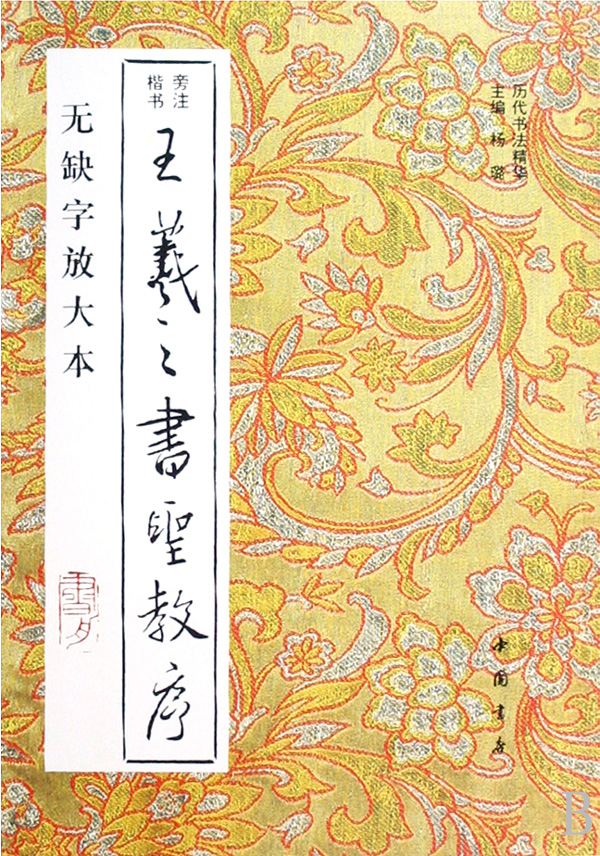 历代书法精华
主编 杨璐
旁注
楷书
王羲之书聖教序
无缺字放大本
中国书店
B